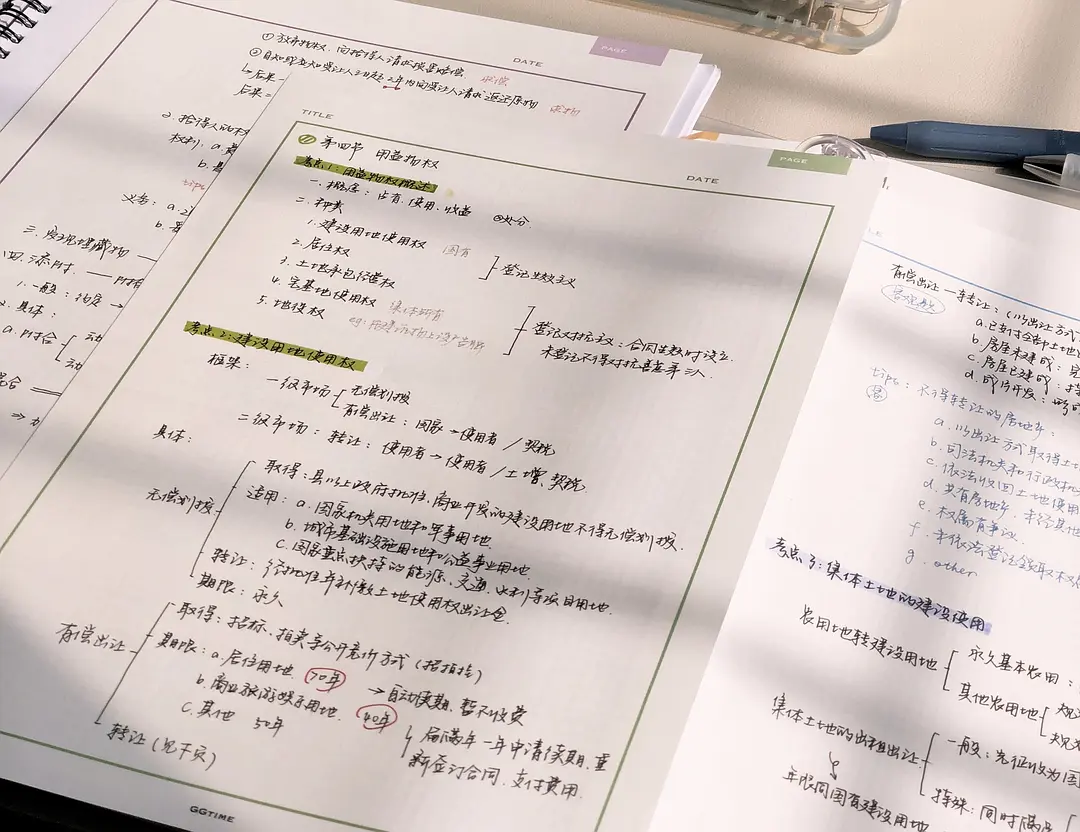 PAGE
DATE
① 放弃物权，向拾得人请求损害赔偿. 求偿
②自知或应知受让人之日起2年内向受让人请求返还原物 求物
后果
后果=
2. 拾得人的权
权利: a.
b.
tips
义务: a.
b.
三. 发现埋藏物
四. 添附. — 附合
1. 一般: 约定 →
2. 具体:
a. 附合
动
动
混合
TITLE
PAGE
DATE
第四节 用益物权
考点1: 用益物权概述
一. 概念: 占有. 使用. 收益 处分.
二. 种类
1. 建设用地使用权 国有
2. 居住权
登记生效主义
3. 土地承包经营权
4. 宅基地使用权 集体所有
5. 地役权 eg: 房建筑物上设广告牌
登记对抗主义: 合同生效时设立.
未登记不得对抗善意第三人.
考点2: 建设用地使用权
框架:
一级市场 无偿划拨
有偿出让: 国家→使用者 / 契税
二级市场: 转让: 使用者→使用者 / 土增、契税
具体:
无偿划拨
取得: 县以上政府批准. 商业开发的建设用地不得无偿划拨.
适用: a. 国家机关用地和军事用地.
b. 城市基础设施用地和公益事业用地.
c. 国家重点扶持的能源、交通、水利等项目用地.
转让: 经批准并补缴土地使用权出让金.
期限: 永久
有偿出让
取得: 招标、拍卖等公开竞价方式 (招拍挂)
期限: a. 居住用地 70年 → 自动续期. 暂不收费
b. 商业旅游娱乐用地. 40年
c. 其他 50年
届满前一年申请续期. 重
新签订合同. 支付费用.
转让 (见下页)
GGTIME
有偿出让 — 转让: (以出让方式
客观数
a. 已支付全部土地
b. 房屋未建成:
c. 房屋已建成: 持
d. 成片开发: 形成
tips: 不得转让的房地产:
a. 以出让方式取得土
b. 司法机关和行政机关
c. 依法收回土地使用
d. 共有房地产. 未经其他
e. 权属有争议.
f. 未依法登记领取权
g. other
考点3: 集体土地的建设使用
农用地转建设用地 永久基本农田:
其他农用地 规
规
集体土地的出租出让 一般: 先征收为国
特殊: 同时满足
年限同国有建设用地